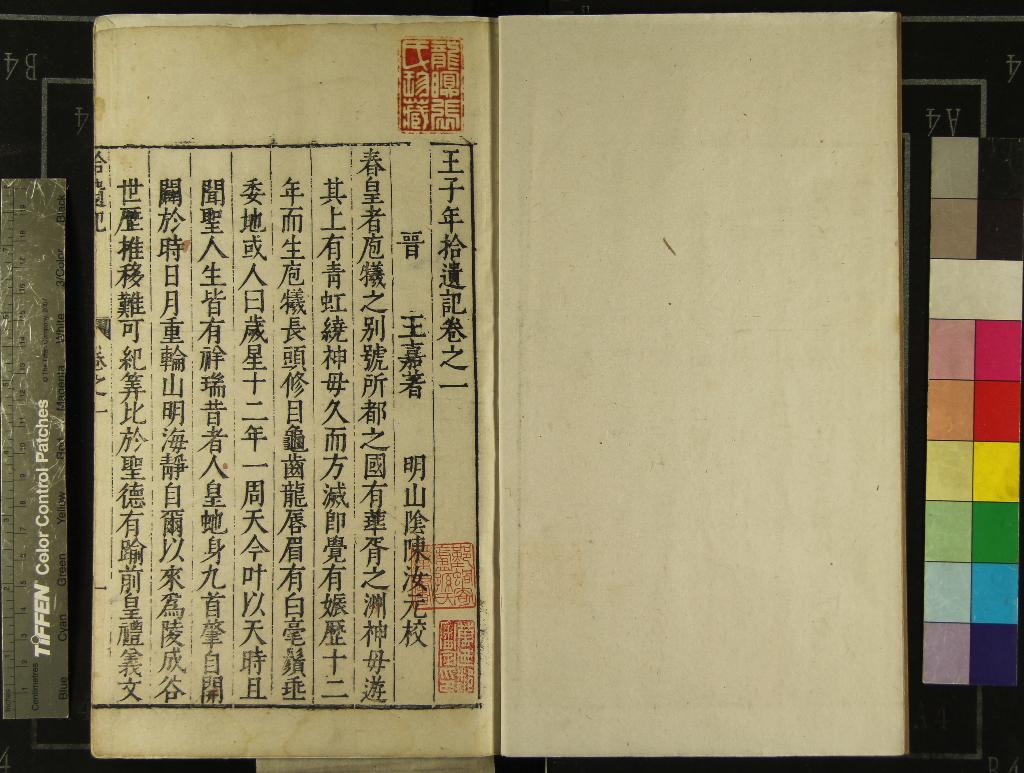 王子年拾遺記卷之一
晉 王嘉著 明山陰陳汝元校
春皇者庖犧之别號所都之國有華胥之洲神母遊
其上有青虹繞神母久而方滅即覺有娠歷十二
年而生庖犧長頭修目龜齒龍唇眉有白毫鬚垂
委地或人曰歲星十二年一周天今叶以天時且
聞聖人生皆有祥瑞昔者人皇蛇身九首肇自開
闢於時日月重輪山明海靜自爾以來爲陵成谷
世歷推移難可紀筭比於聖德有踰前皇禮義文
拾遺記 卷之一 一
龍暝張氏珍藏
TIFFEN Color Control Patches
Blue Cyan Green Yellow Red Magenta White 3/Color Black
Centimetres
Inches
B4
A4